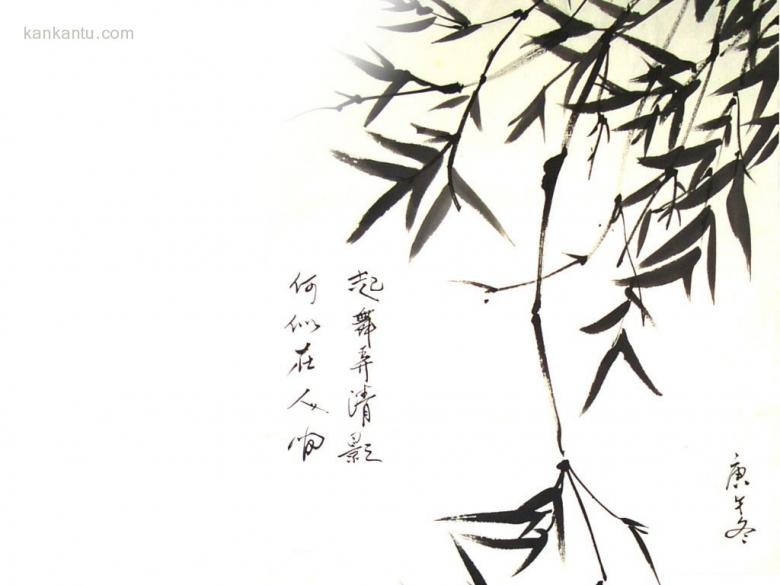 kankantu.com
起舞弄清影
何似在人间
庚午冬